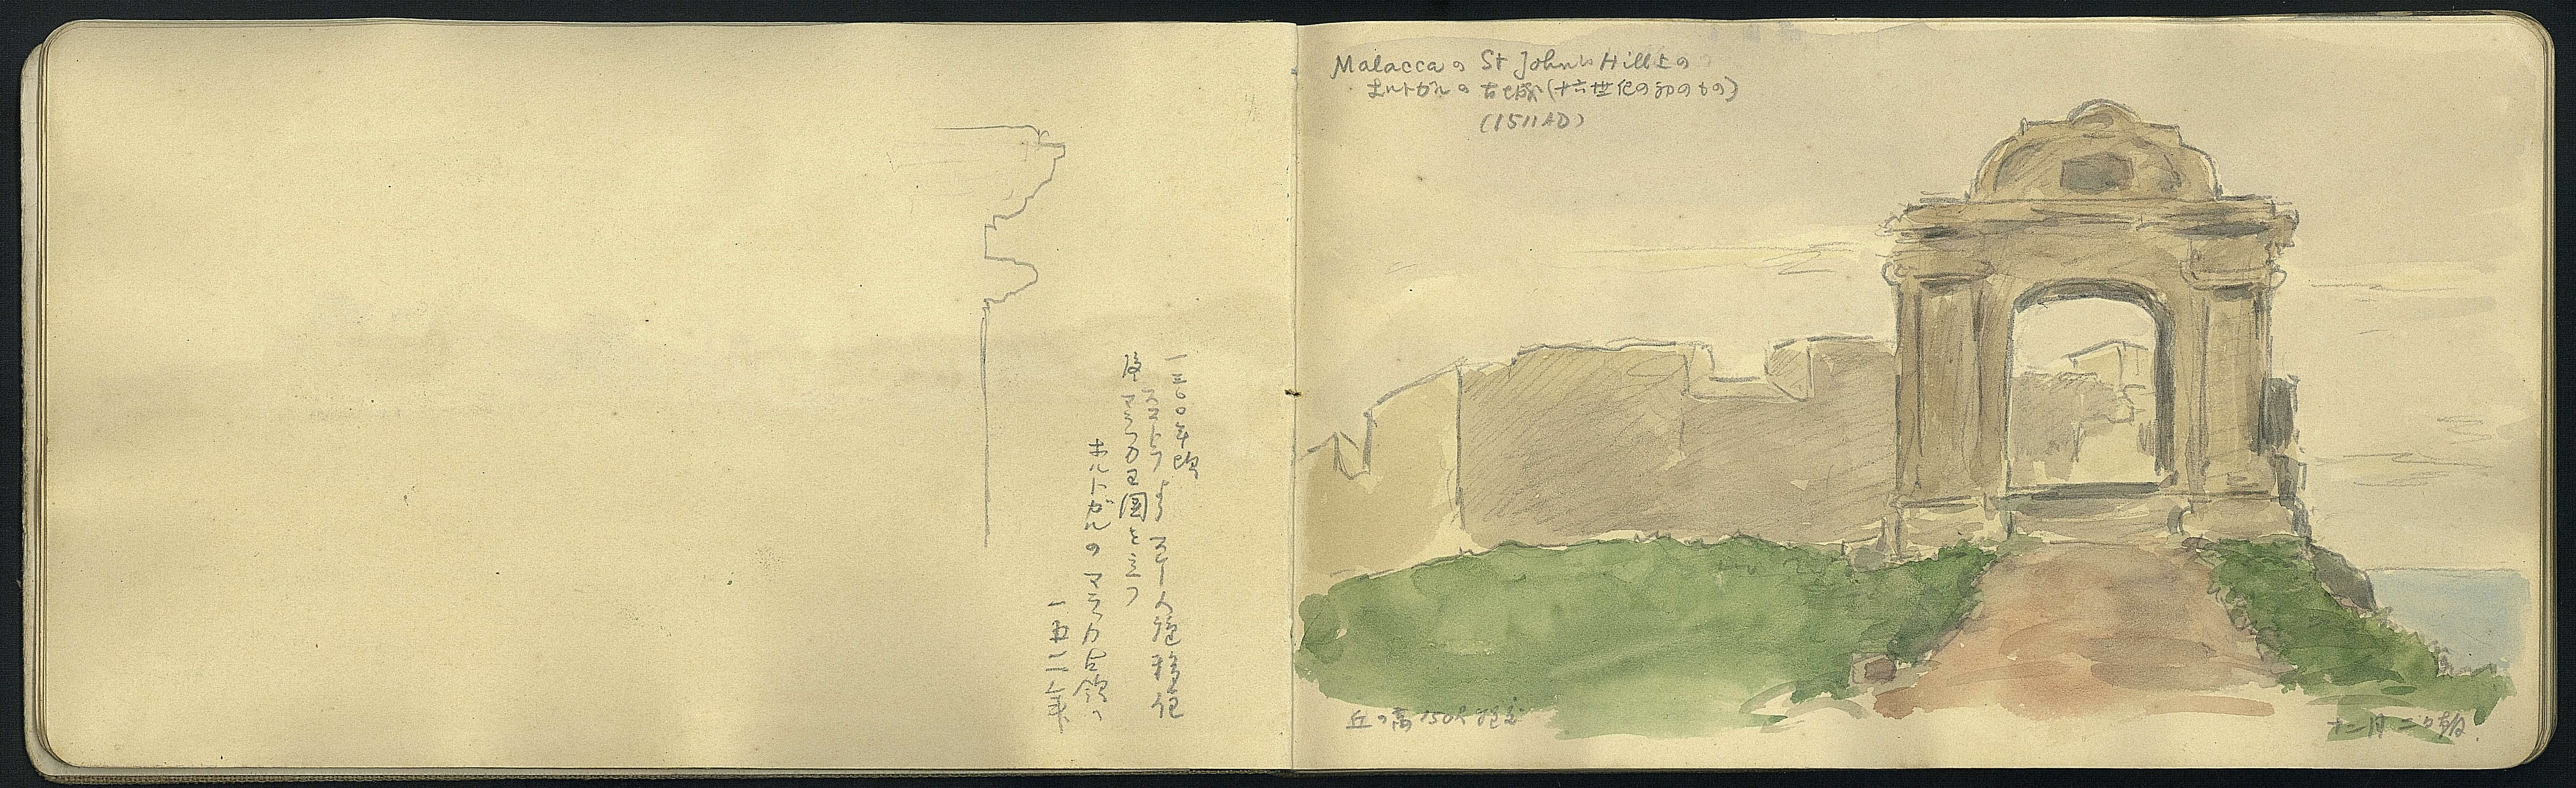 一三〇〇年頃
スマトラより 馬来人種移住
後 マラッカ王国を立つ
ポルトガルのマラッカ占領
一五一一年
Malaccaの St John's Hill上の
ポルトガルの 古城(十六世紀の初のもの)
(1511AD)
丘の高 150尺
十二月二日朝